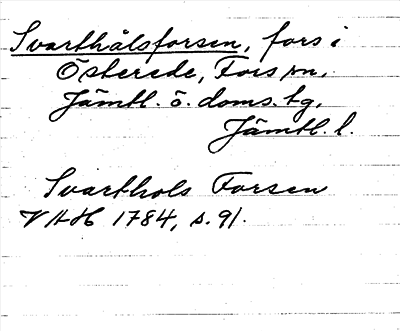 Svarthålsforsen, fors i
Österede, Fors sn,
Jämtl. ö. doms. tg,
Jämtl. l.
Svarthols Forsen
VAH 1784, s. 91.